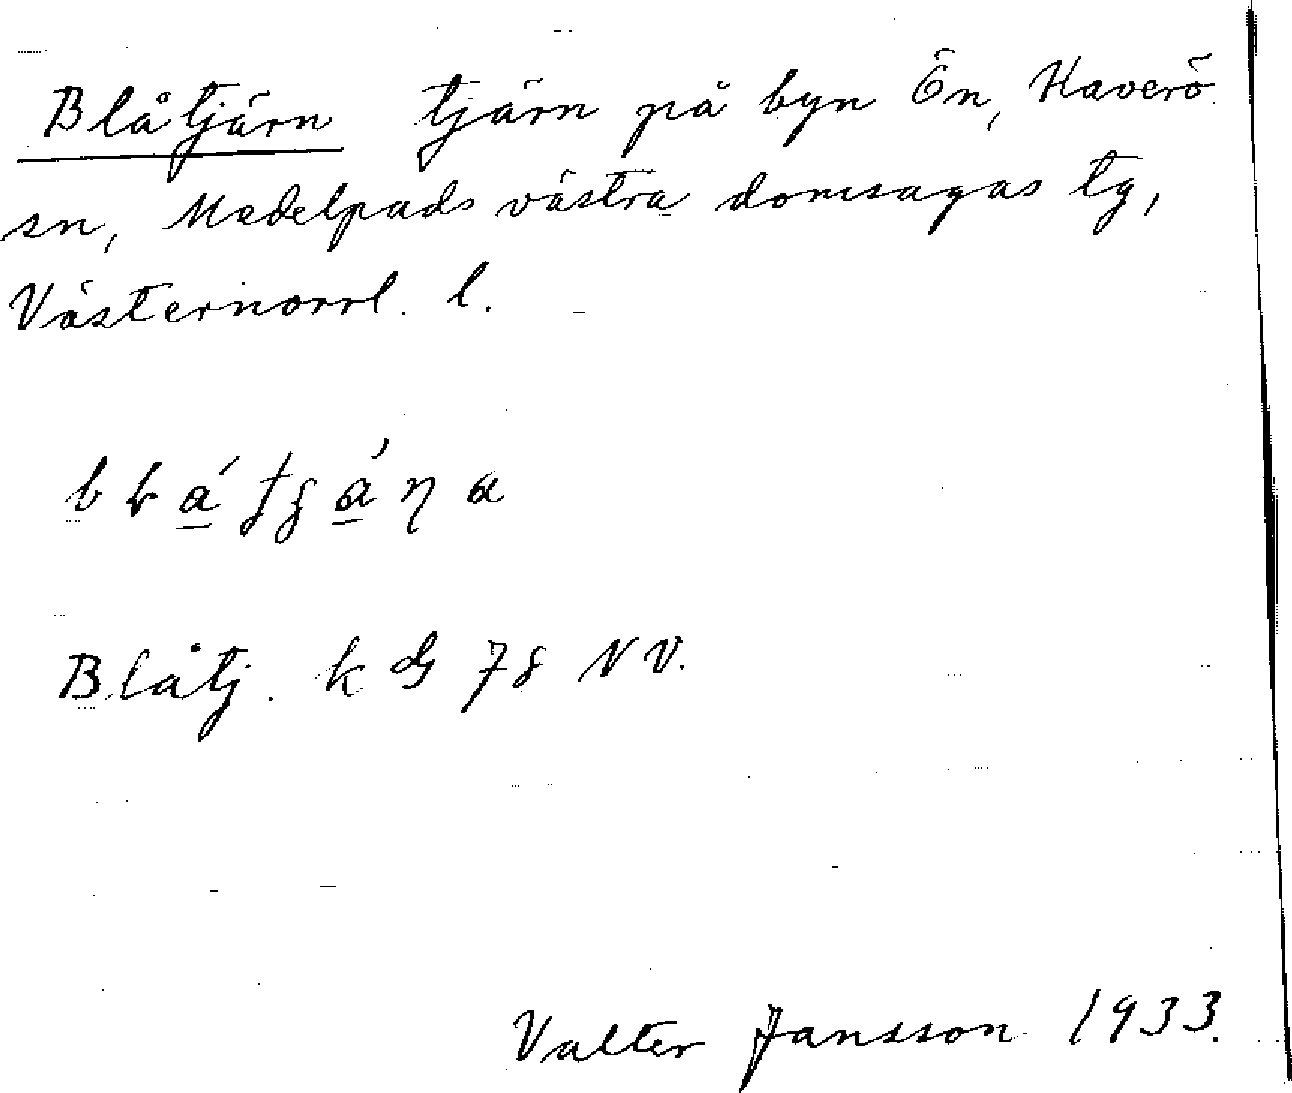 Blåtjärn tjärn på byn Ön, Haverö
sn, Medelpads västra domsagas tg,
Västernorrl. l.
Blåtj. k G 78 NV.
Valter Jansson 1933.